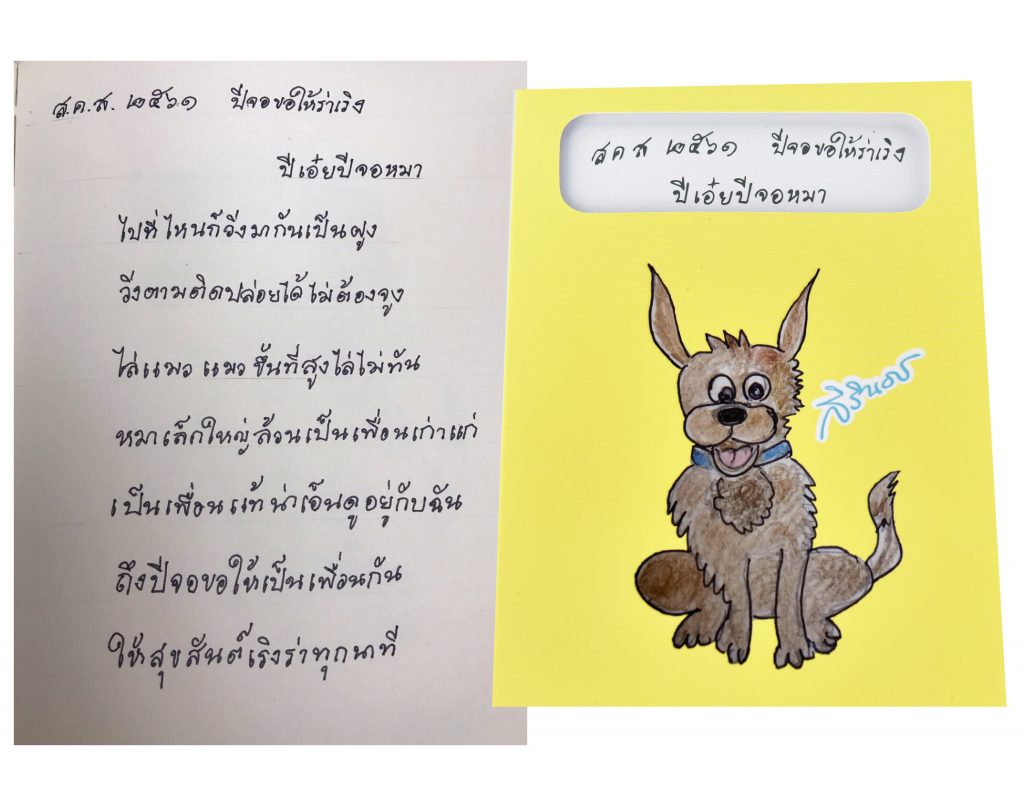 ส.ค.ส. ๒๕๖๑ ปีจอขอให้ร่าเริง
ปีเอ๋ยปีจอหมา
ไปที่ไหนก็วิ่งมากันเป็นฝูง
วิ่งตามติดปล่อยได้ไม่ต้องจูง
ไล่แมว แมวขึ้นที่สูงไล่ไม่ทัน
หมาเล็กใหญ่ล้วนเป็นเพื่อนเก่าแก่
เป็นเพื่อนแท้น่าเอ็นดูอยู่กับฉัน
ถึงปีจอขอให้เป็นเพื่อนกัน
ให้สุขสันต์เริงร่าทุกนาที
ส ค ส ๒๕๖๑ ปีจอขอให้ร่าเริง
ปีเอ๋ยปีจอหมา
สิรินธร